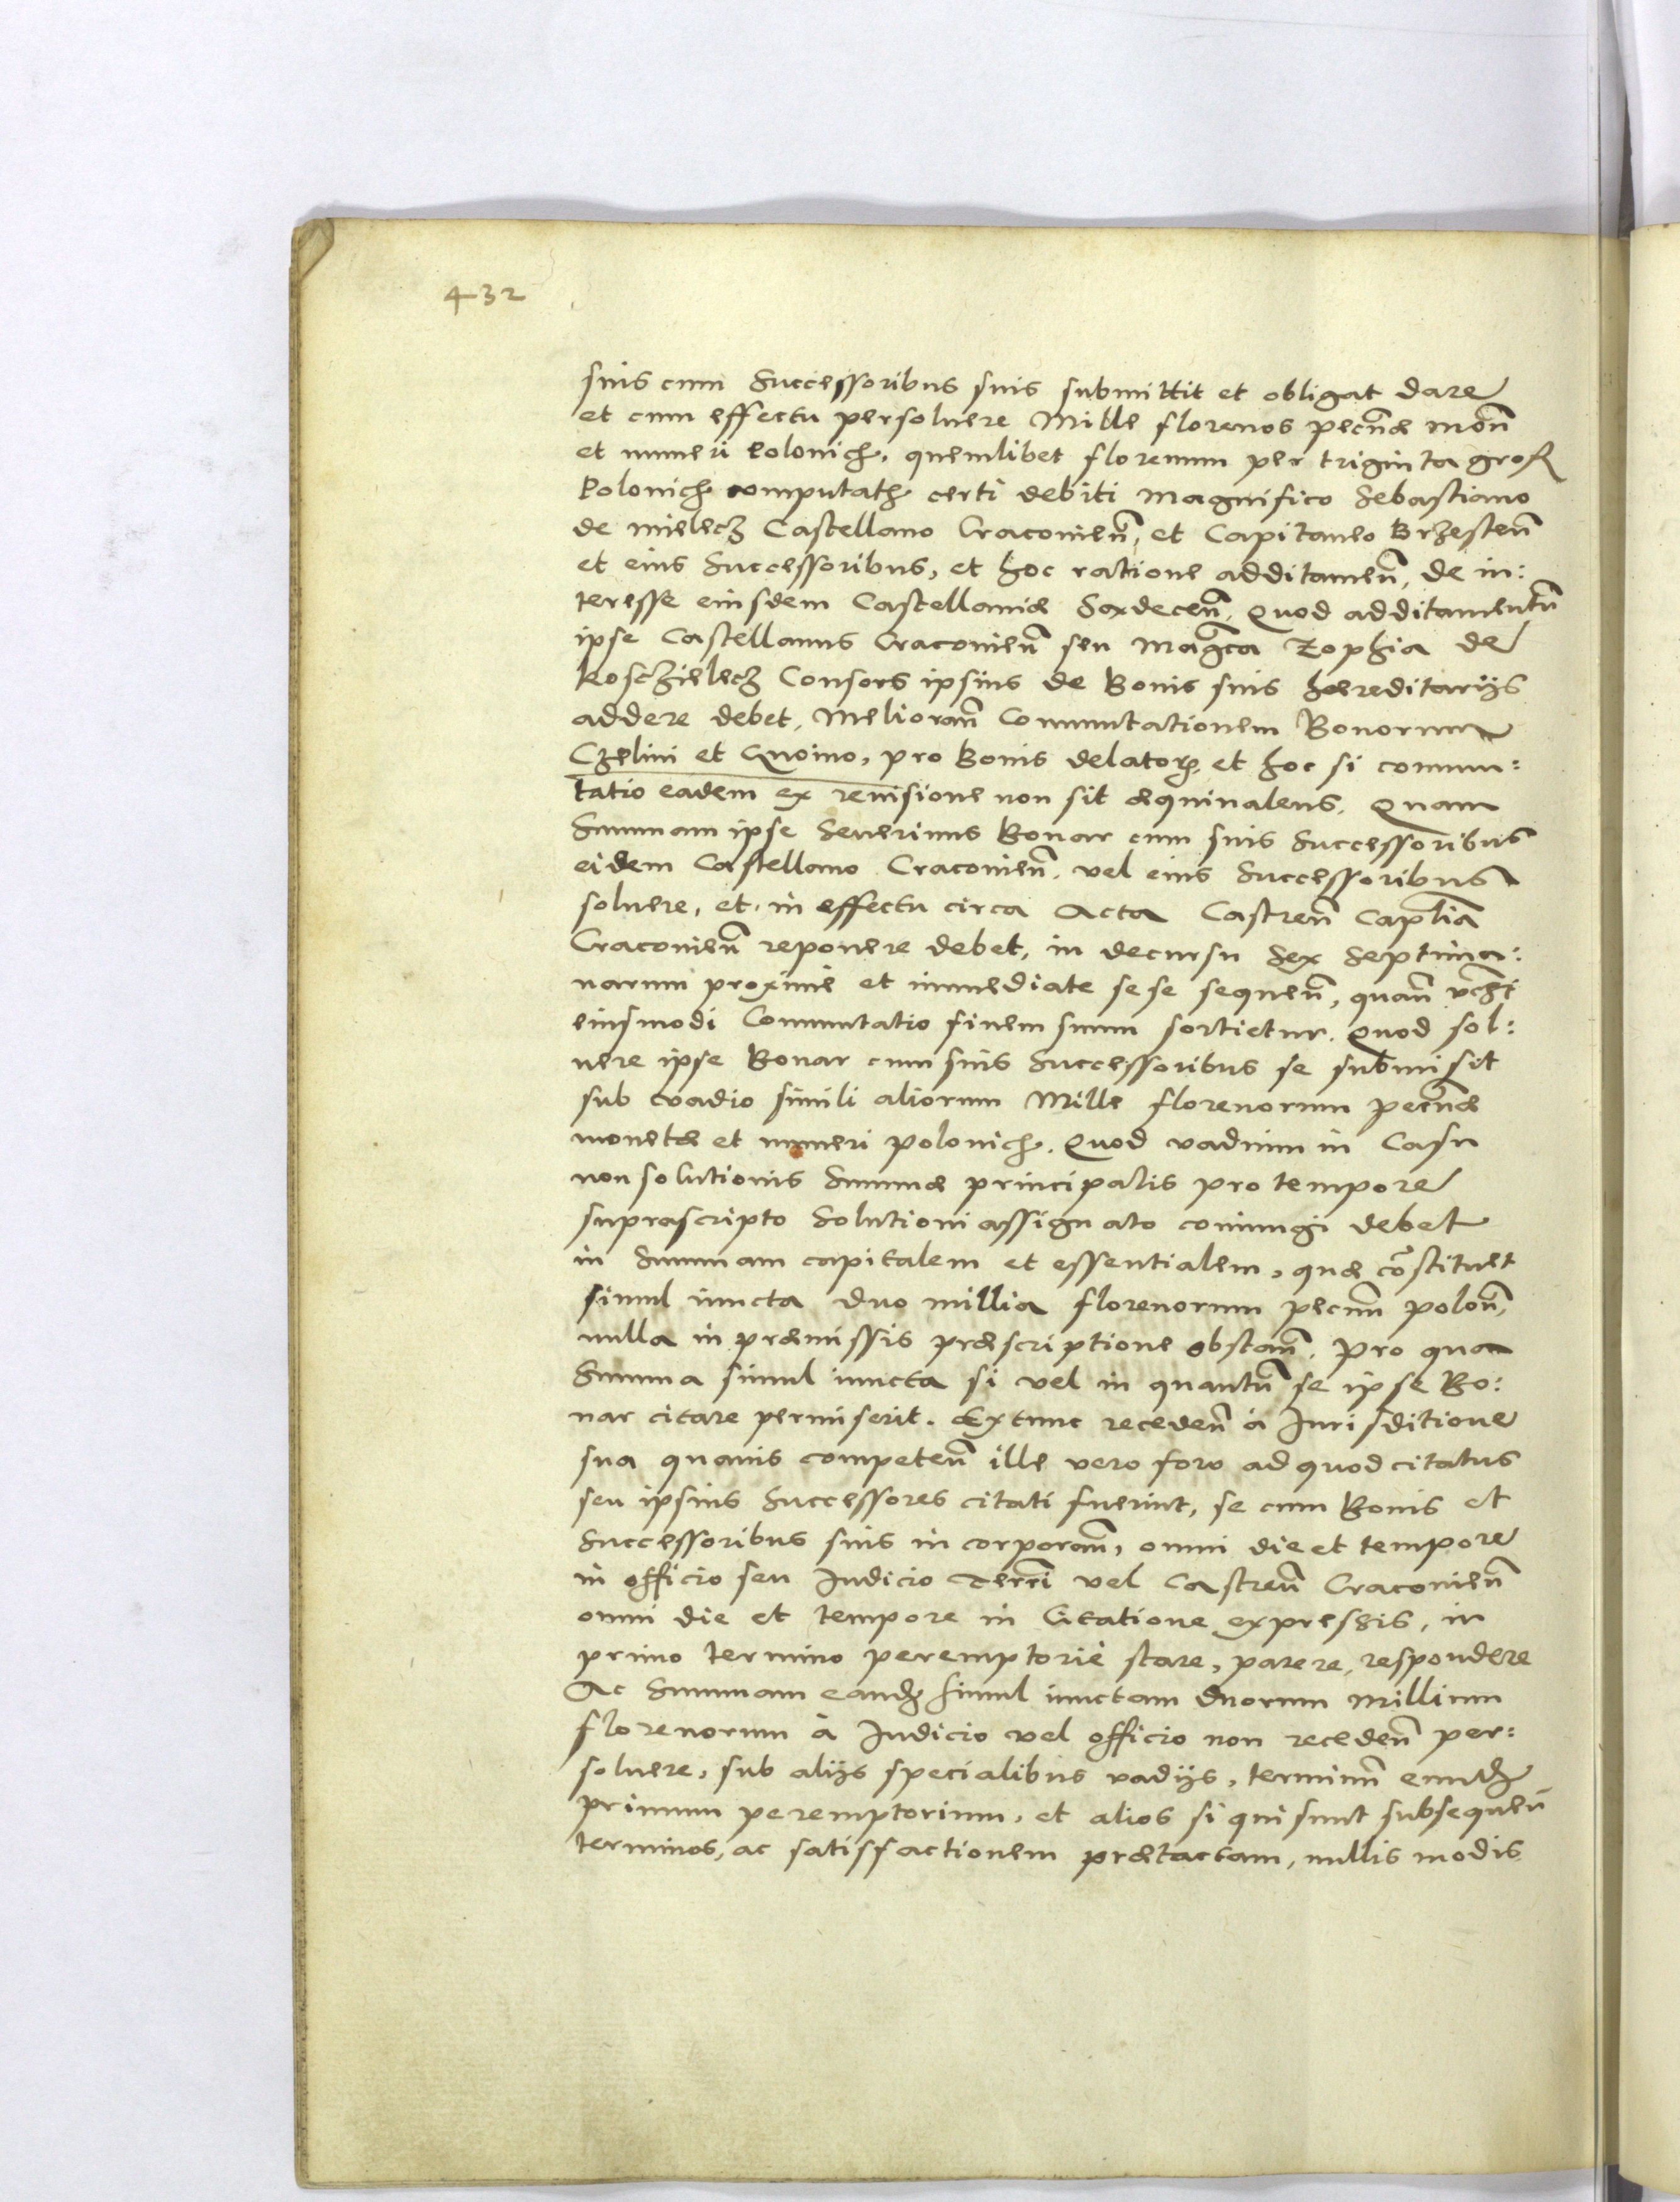 432
suis cum Successoribus suis submittit et obligat dare
et cum effectu persoluere Mille florenos pecũæ moñ
et numeri Polonich. quemlibet florenum per triginta gross
Polonich computath certi debiti Magnifico Sebastiano
de mielecz Castellano Cracovieñ, et Capitaneo Brzesteñ
et eius Successoribus, et hoc ratione additameñ, de in:
teresse eiusdem Castellaniæ Saxdeceñ, Quod additamentũ
ipse Castellanus Cracovieñ seu Magca Zophia de
Kosczielecz Consors ipsius de Bonis suis hæreditarijs
addere debet, Meliorañ Commutationem Bonorum
Czelini et Gnoino, pro Bonis delator, et hoc si commu:
tatio eadem ex reuisione non sit æquiualens. Quam
Summam ipse Seuerinus Bonar cum suis Successoribus
eidem Castellano Cracovieñ. vel eius Successoribus
soluere, et in effectu circa Acta Castreñ Captia
Cracovieñ reponere debet, in decursu Sex Septima:
narum proximè et immediate sese sequeñ, quañ
eiusmodi Commutatio finem suum sortietur. Quod sol:
uere ipse Bonar cum suis Successoribus se submisit
sub vadio simili aliorum Mille florenorum pecũæ
monetæ et numeri polonich. Quod vadium in Casu
non solutionis Summæ principalis pro tempore
suprascripto Solutioni assignato coniungi debet
in Summam capitalem et essentialem, quæ cõstituet
simul iuncta duo millia florenorum pecuñ poloñ,
nulla in præmissis præscriptione obstañ. Pro qua
Summa simul iuncta si vel in quantũ se ipse Bo:
nar citare permiserit. Extunc recedeñ à Jurisditione
sua quauis competeñ ille vero foro ad quod citatus
seu ipsius Successores citati fuerint, se cum Bonis et
Successoribus suis in corporañ, omni die et tempore
in officio seu Judicio Terri vel Castreñ Cracovieñ
omni die et tempore in Citatione expressis, in
primo termino peremptoriè stare, parere, respondere
Ac Summam eandz simul iunctam duorum Millium
florenorum à Judicio vel officio non recedeñ per:
soluere, sub alijs specialibus vadijs, terminũ eundz
primum peremptorium, et alios si qui sunt subsequeñ
terminos, ac satisfactionem prætactam, nullis modis